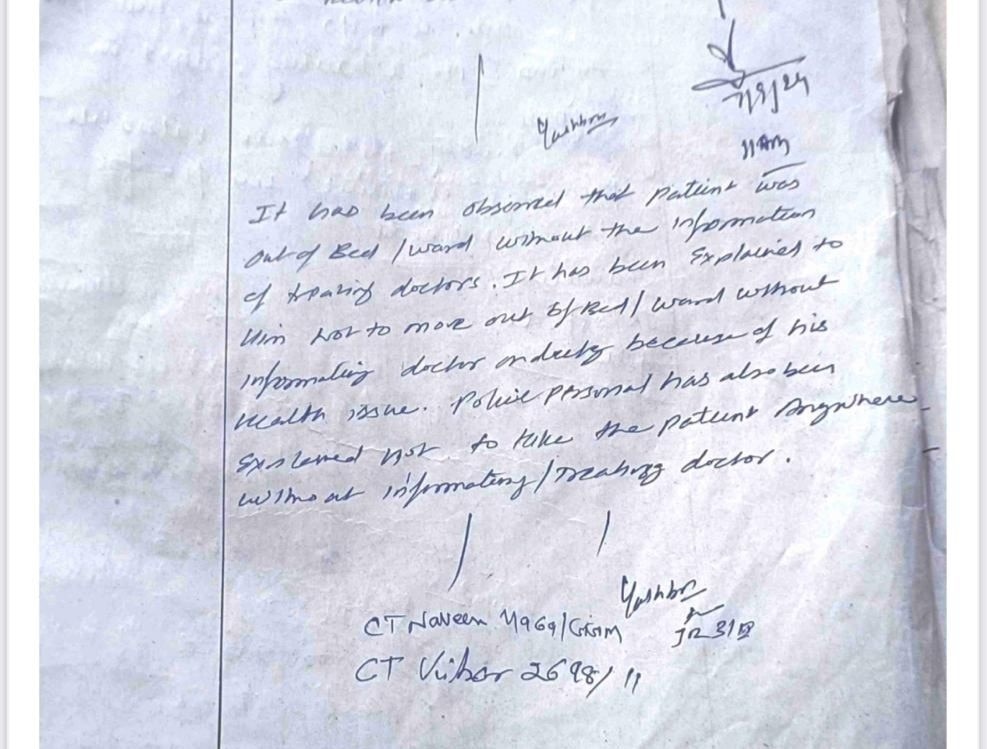 7/9/24
11AM
It has been observed that patient was
out of Bed / ward without the information
of treating doctors. It has been Explained to
Him not to move out of Bed / ward without
informating doctor on duty because of his
Health issue. Police personal has also been
Explained not to take the patient Anywhere
without informating / Treating doctor.
CT Naveen
CT Vikar 2698/11